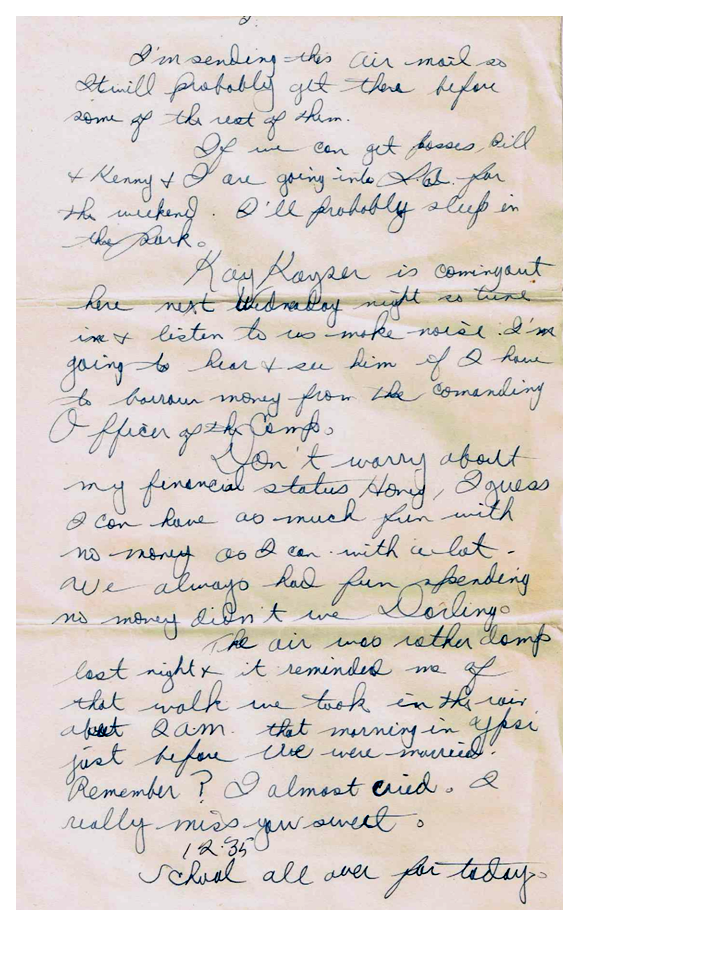 2
I'm sending this air mail so
It will probably get there before
some of the rest of them.
If we can get passes, Bill
& Kenny & I are going into L.A. for
the weekend. I'll probably sleep in
the park.
Kay Kayser is coming out
here next Wednesday night so tune
in & listen to us make noise. I'm
going to hear & see him if I have
to borrow money from the comanding
Officer of the Camp.
Don't worry about
my financial status Honey, I guess
I can have as much fun with
no money as I can with a lot -
We always had fun spending
no money didn't we Darling.
The air was rather damp
last night & it reminded me of
that walk we took in the rain
about 2 am. that morning in Ypsi
just before we were married.
Remember? I almost cried. I
really miss you sweet.
12:35
School all over for today.